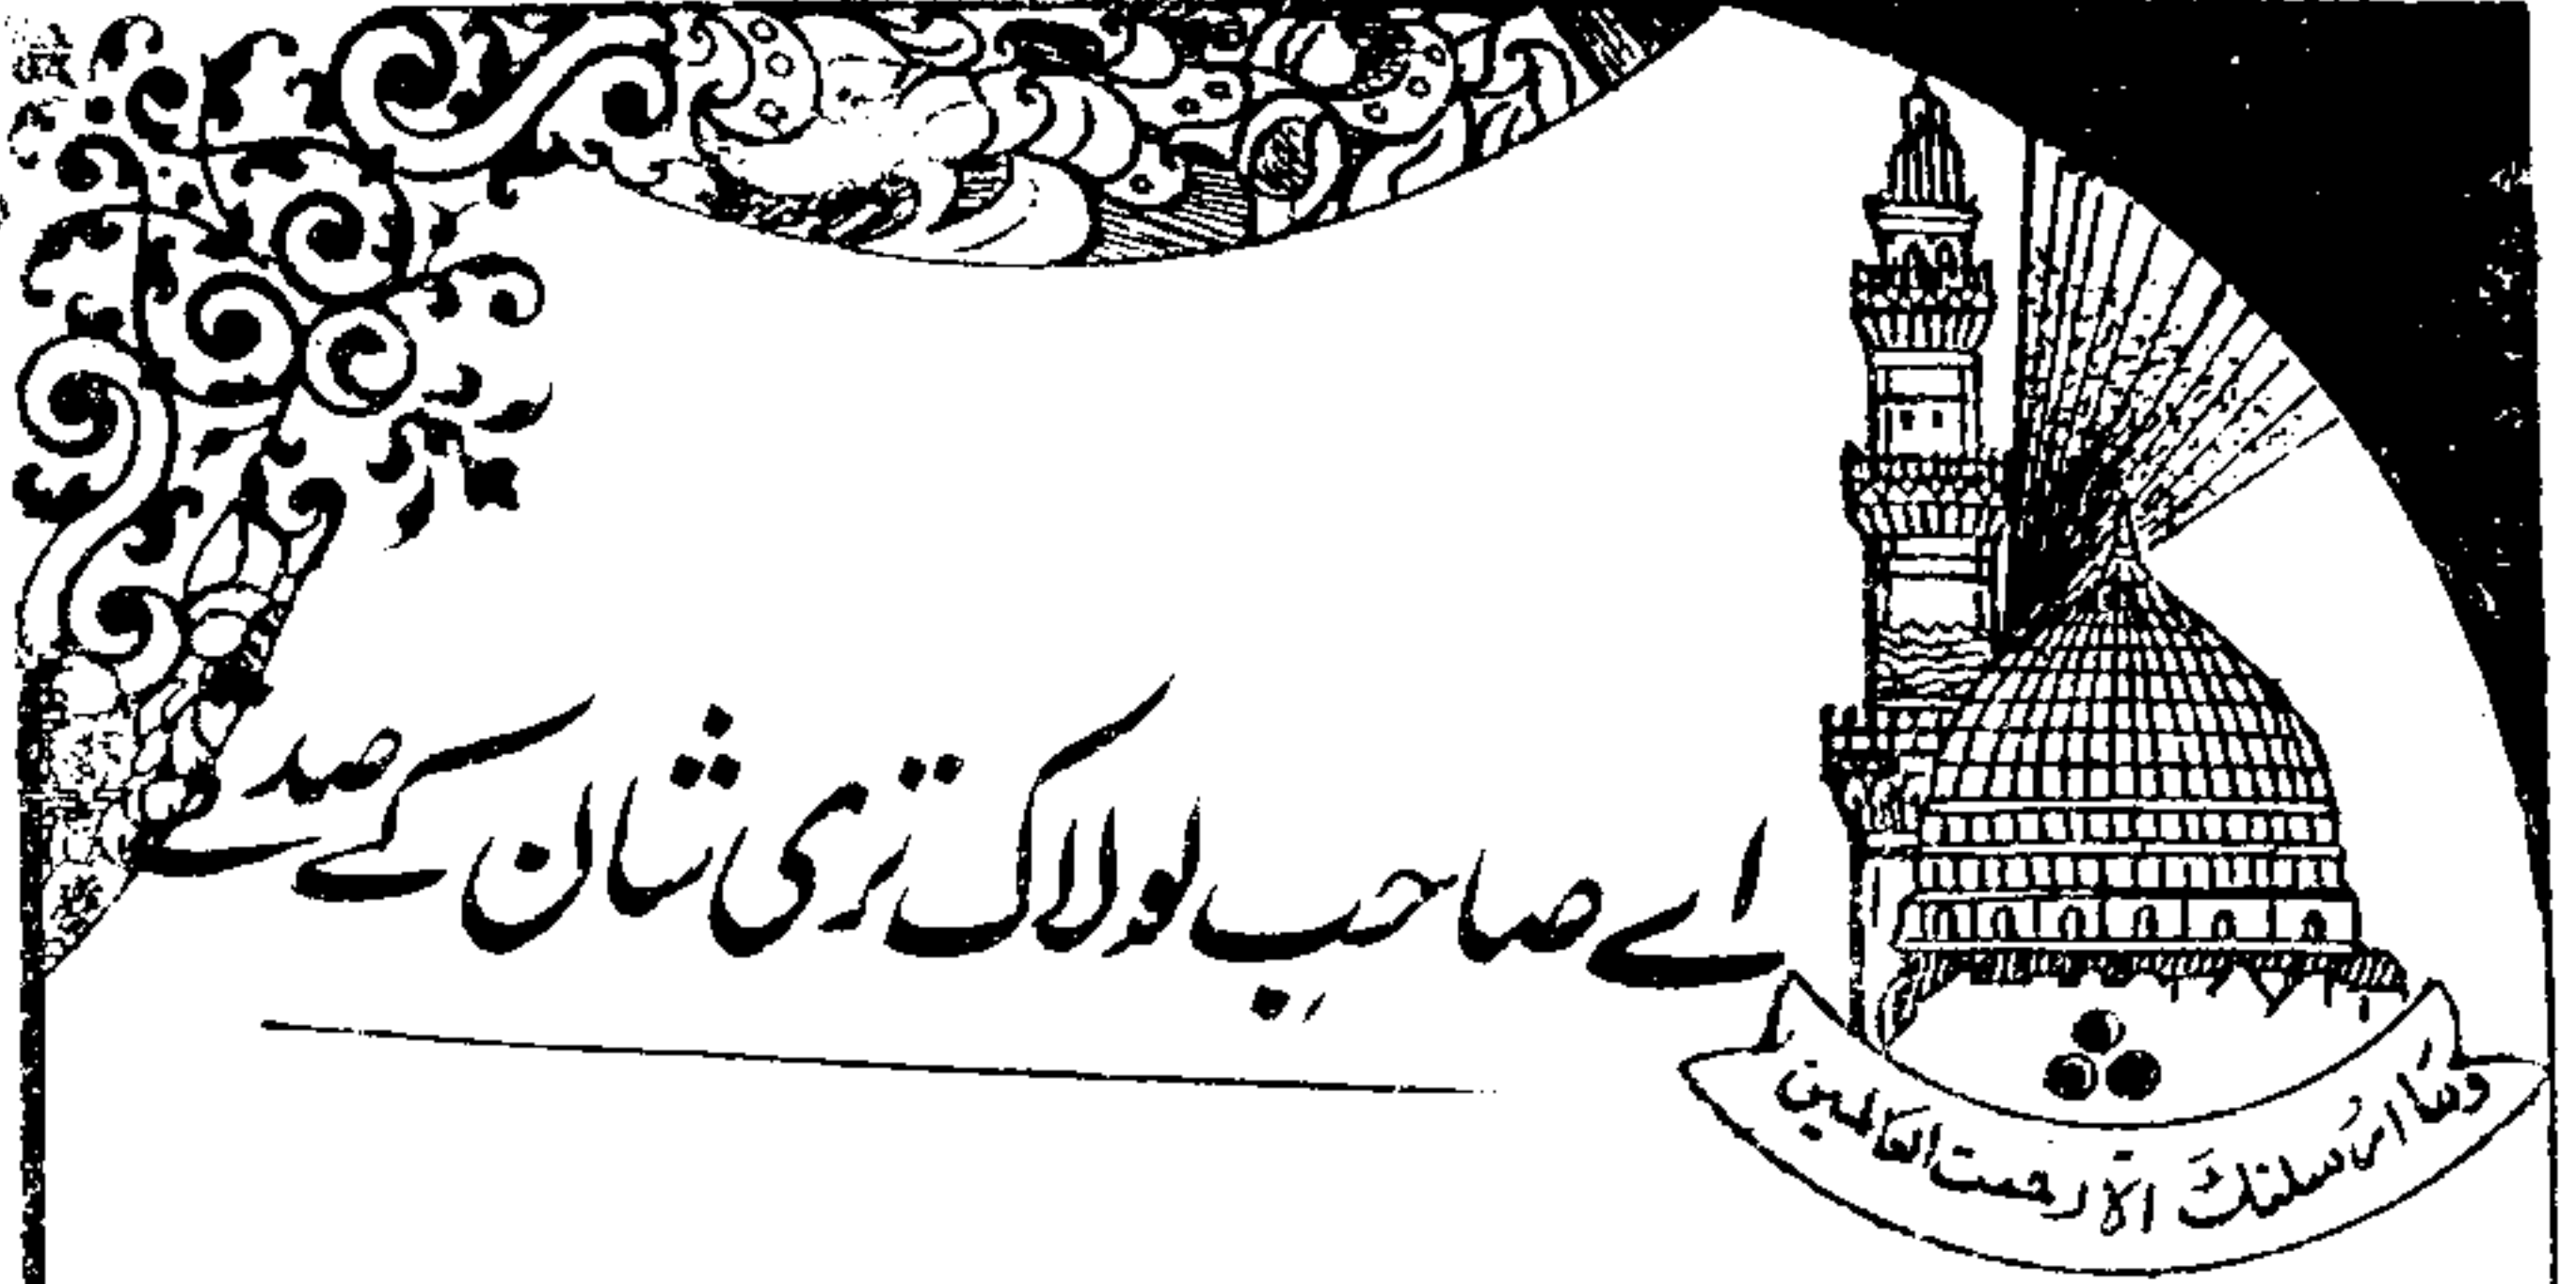 اے صاحبِ لولاک تری شان کے صدقے
وما ارسلنک الا رحمت العالمین